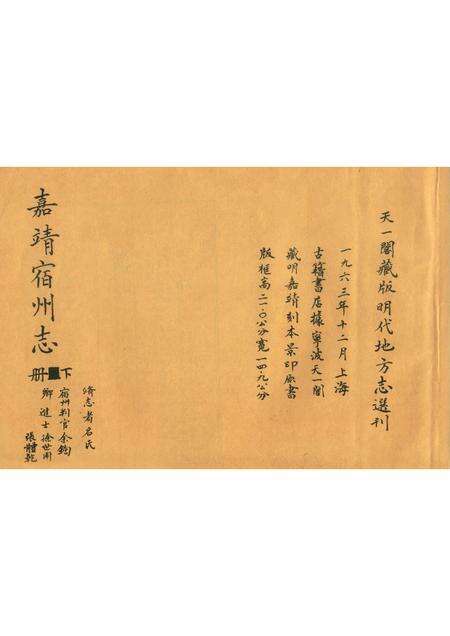 天一閣藏版明代地方志選刊
一九六三年十二月上海
古籍書店據寧波天一閣
藏明嘉靖刻本景印原書
版框高二一·〇公分寬一四·九公分
修志者名氏
宿州判官余鈞
鄉進士徐世用
張體乾
嘉靖宿州志
下冊